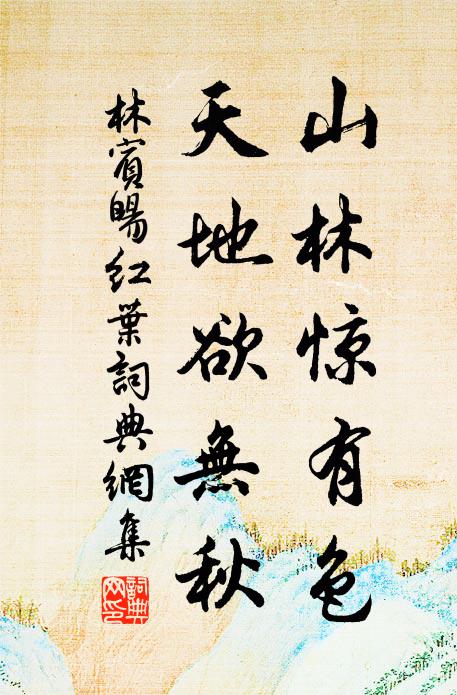 山林惊有色
天地欲無秋
林賓暘紅葉詞典網集
詞典網印